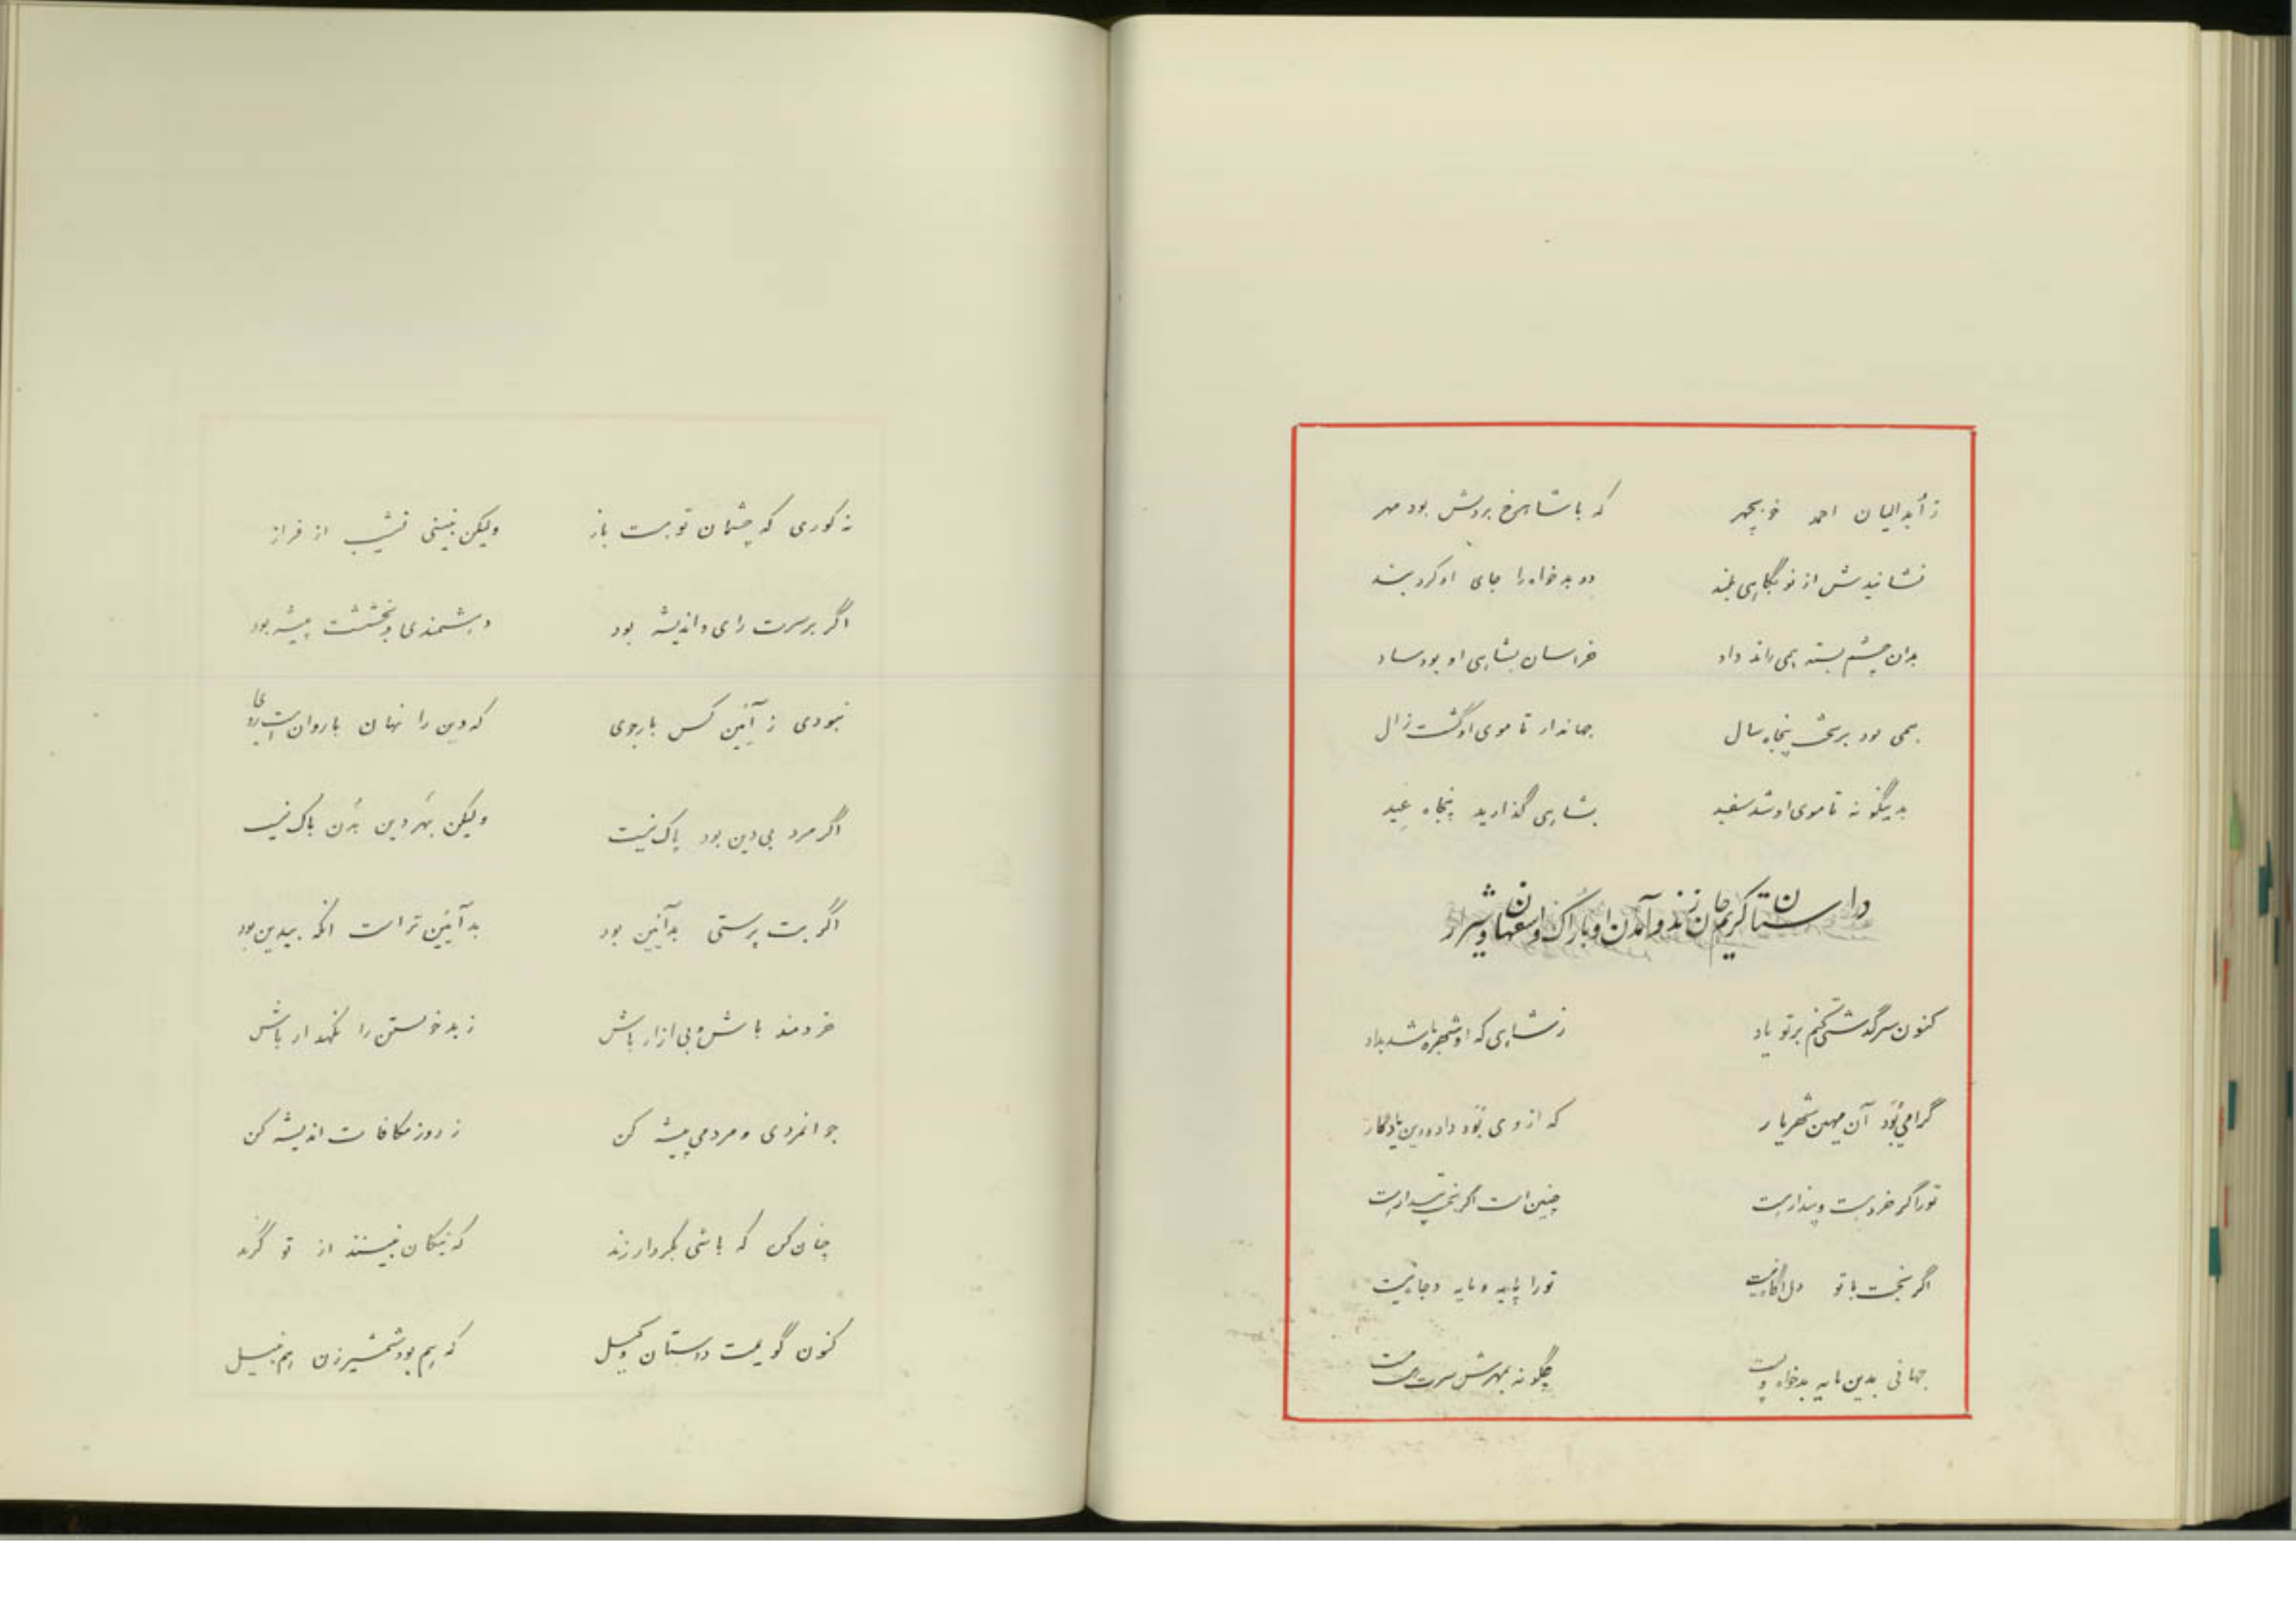 ز اُبدالیان احمد خوبچهر که با شاهرخ بردلش بود مهر
نشانیدش از نو بگاهی بلند دو بدخواه را جای او کرد بند
بدان چشم بسته همی راند داد خراسان بشاهی او بود ساد
همی بود بر تخت پنجاه سال جهاندار تا موی او گشت زال
بدینگونه تا موی او شد سفید بشاهی گذارید پنجاه عید
داستان کریم خان زند و آمدن او باراک و اسفهان و شیراز
کنون سرگذشتی کنم بر تو یاد ز شاهی که او شهره باشد بداد
گرامی بُوَد آن مهین شهریار که از وی بُوَد داد و دین یادگار
تو را گر خرد هست و پندار هست چنین است اگر بخت بیدار هست
اگر بخت با تو دل‌آگاه نیست تو را پایه و مایه و جاه نیست
جهانی بدین مایه بدخواه چگونه بمهرش سرت
نه کوری که چشمان تو هست باز ولیکن نبینی نشیب از فراز
اگر بر سرت رای و اندیشه بود دهشمندی و بخششت پیشه بود
نبودی ز آیین کس بارجوی که دین را نهان با روان است روی
اگر مرد بی‌دین بود باک نیست ولیکن بهر دین بُدن باک نیست
اگر بت پرستی بدآیین بود بدآیین‌تر است آنکه بیدین بود
خردمند باش و بی‌ازار باش ز بد خویستن را نگهدار باش
جوانمردی و مردمی پیشه کن ز روز مکافات اندیشه کن
چنان کن که باشی بکردار زند که نیکان نبینند از تو گزند
کنون گویمت داستان وکیل که هم بود شمشیرزن هم نبیل